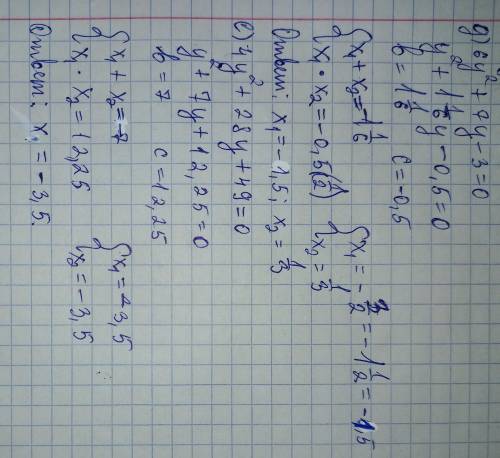 д) 6y² + 7y − 3 = 0
y² + 1 1/6 y − 0,5 = 0
b = 1 1/6 c = −0,5
{ x₁ + x₂ = −1 1/6
x₁ · x₂ = −0,5 (1/2)
{ x₁ = − 3/2 = −1 1/2 = −1,5
x₂ = 1/3
Ответ: x₁ = −1,5; x₂ = 1/3
е) 4y² + 28y + 49 = 0
y² + 7y + 12,25 = 0
b = 7 c = 12,25
{ x₁ + x₂ = −7
x₁ · x₂ = 12,25
{ x₁ = −3,5
x₂ = −3,5
Ответ: x₁ = −3,5.